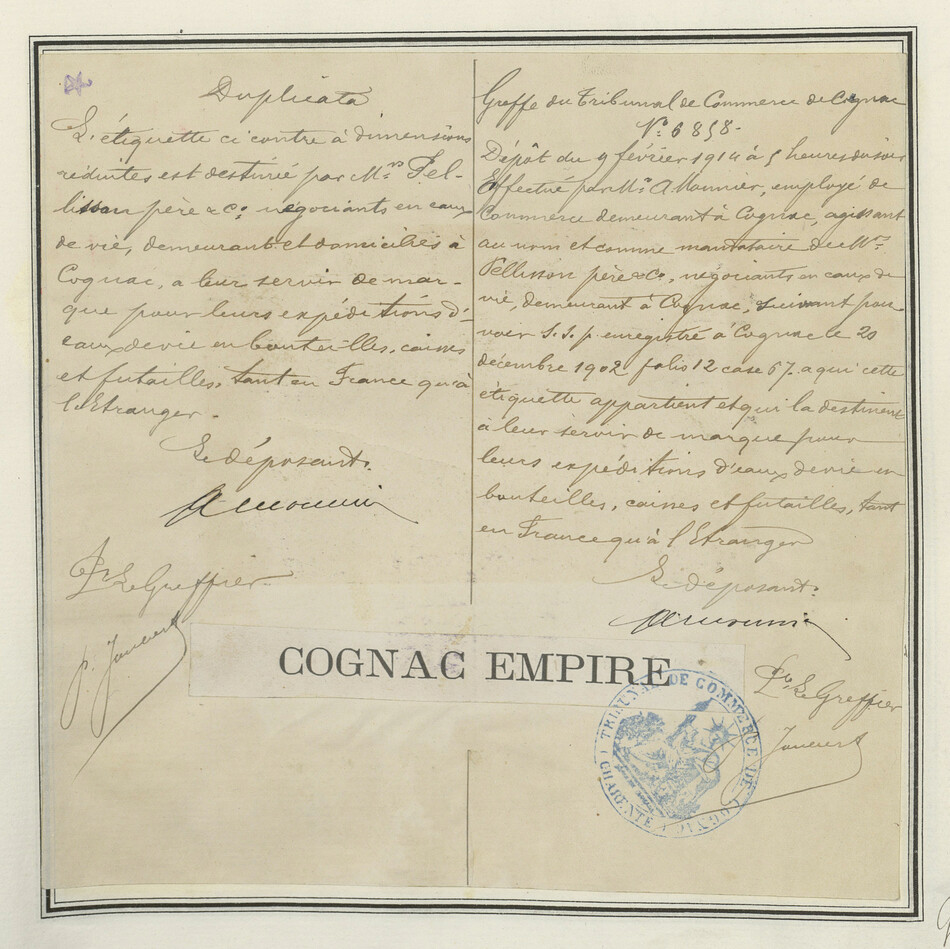 Duplicata
L'étiquette ci contre à dimensions
réduites est destinée par Mrs Pel-
lisson père & Co négociants en eaux
de vie, demeurant et domiciliés à
Cognac, a leur servir de mar-
que pour leurs expéditions d'-
eaux de vie en bouteilles, caisses
et futailles, tant en France qu'à
l'Etranger.
Le déposant.
AMounier
Pr Le Greffier
p. Joubert
Greffe du Tribunal de Commerce de Cognac
No 6858.
Dépôt du 9 février 1914 à 5 heures du soir
Effectué par Mr A Mounier, employé de
Commerce demeurant à Cognac, agissant
au nom et comme mandataire de Mrs
Pellisson père & Co, négociants en eaux de
vie, demeurant à Cognac, suivant pou-
voir S.S.p. enregistré à Cognac le 20
décembre 1902 folio 12 case 67. a qui cette
étiquette appartient et qui la destinent
à leur servir de marque pour
leurs expéditions d'eaux de vie en
bouteilles, caisses et futailles, tant
en France qu'à l'Etranger
Le déposant.
AMounier
Pr Le Greffier
COGNAC EMPIRE
TRIBUNAL DE COMMERCE DE COGNAC
CHARENTE